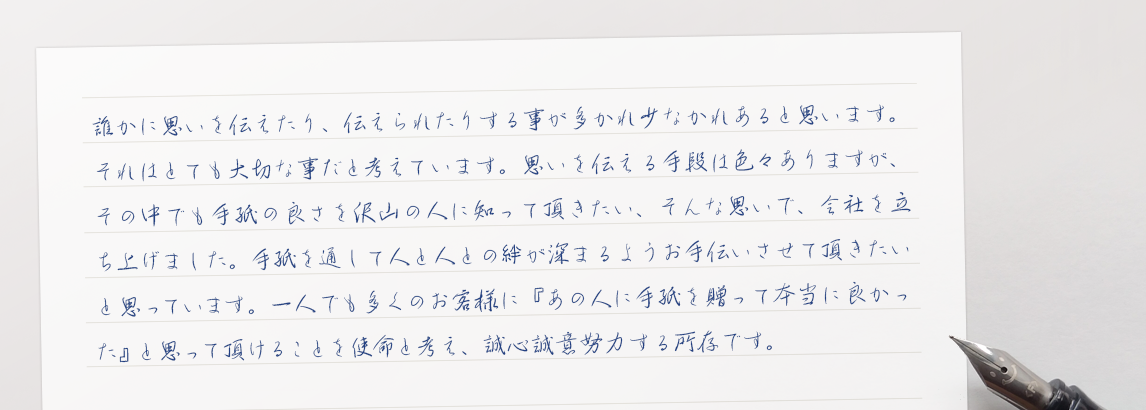 誰かに思いを伝えたり、伝えられたりする事が多かれ少なかれあると思います。
それはとても大切な事だと考えています。思いを伝える手段は色々ありますが、
その中でも手紙の良さを沢山の人に知って頂きたい、そんな思いで、会社を立
ち上げました。手紙を通して人と人との絆が深まるようお手伝いさせて頂きたい
と思っています。一人でも多くのお客様に『あの人に手紙を贈って本当に良かっ
た』と思って頂けることを使命と考え、誠心誠意努力する所存です。